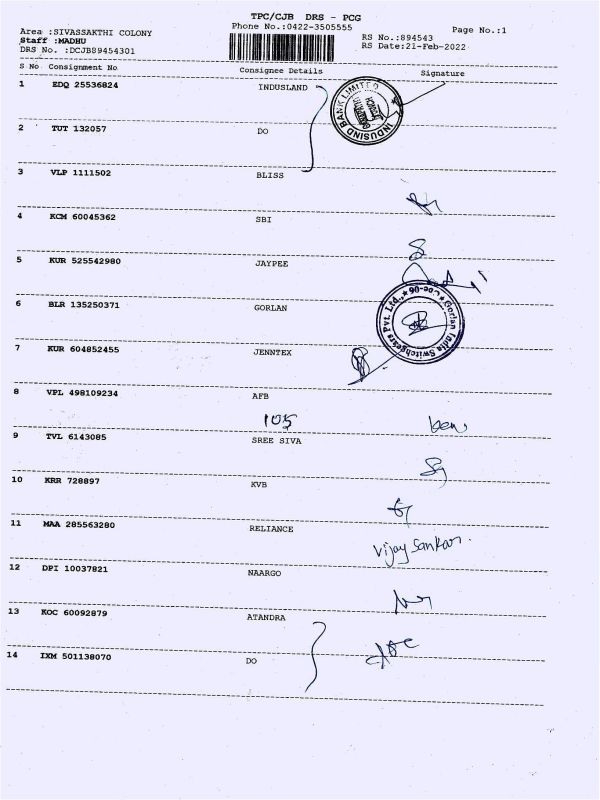 TPC/CJB DRS - PCG
Phone No.:0422-3505555
Page No.:1
Area :SIVASSAKTHI COLONY
Staff :MADHU
DRS No. :DCJB89454301
RS No.:894543
RS Date:21-Feb-2022
S No Consignment No Consignee Details Signature
1 EDQ 25536824 INDUSLAND
INDUSIND BANK LIMITED
2 TUT 132057 DO
3 VLP 1111502 BLISS
4 KCM 60045362 SBI
5 KUR 525542980 JAYPEE
6 BLR 135250371 GORLAN
Gorlan India Switchgears Pvt. Ltd.,
7 KUR 604852455 JENNTEX
8 VPL 498109234 AFB
105
9 TVL 6143085 SREE SIVA
10 KRR 728897 KVB
11 MAA 285563280 RELIANCE
Vijay Sankar.
12 DPI 10037821 NAARGO
13 KOC 60092879 ATANDRA
14 IXM 501138070 DO